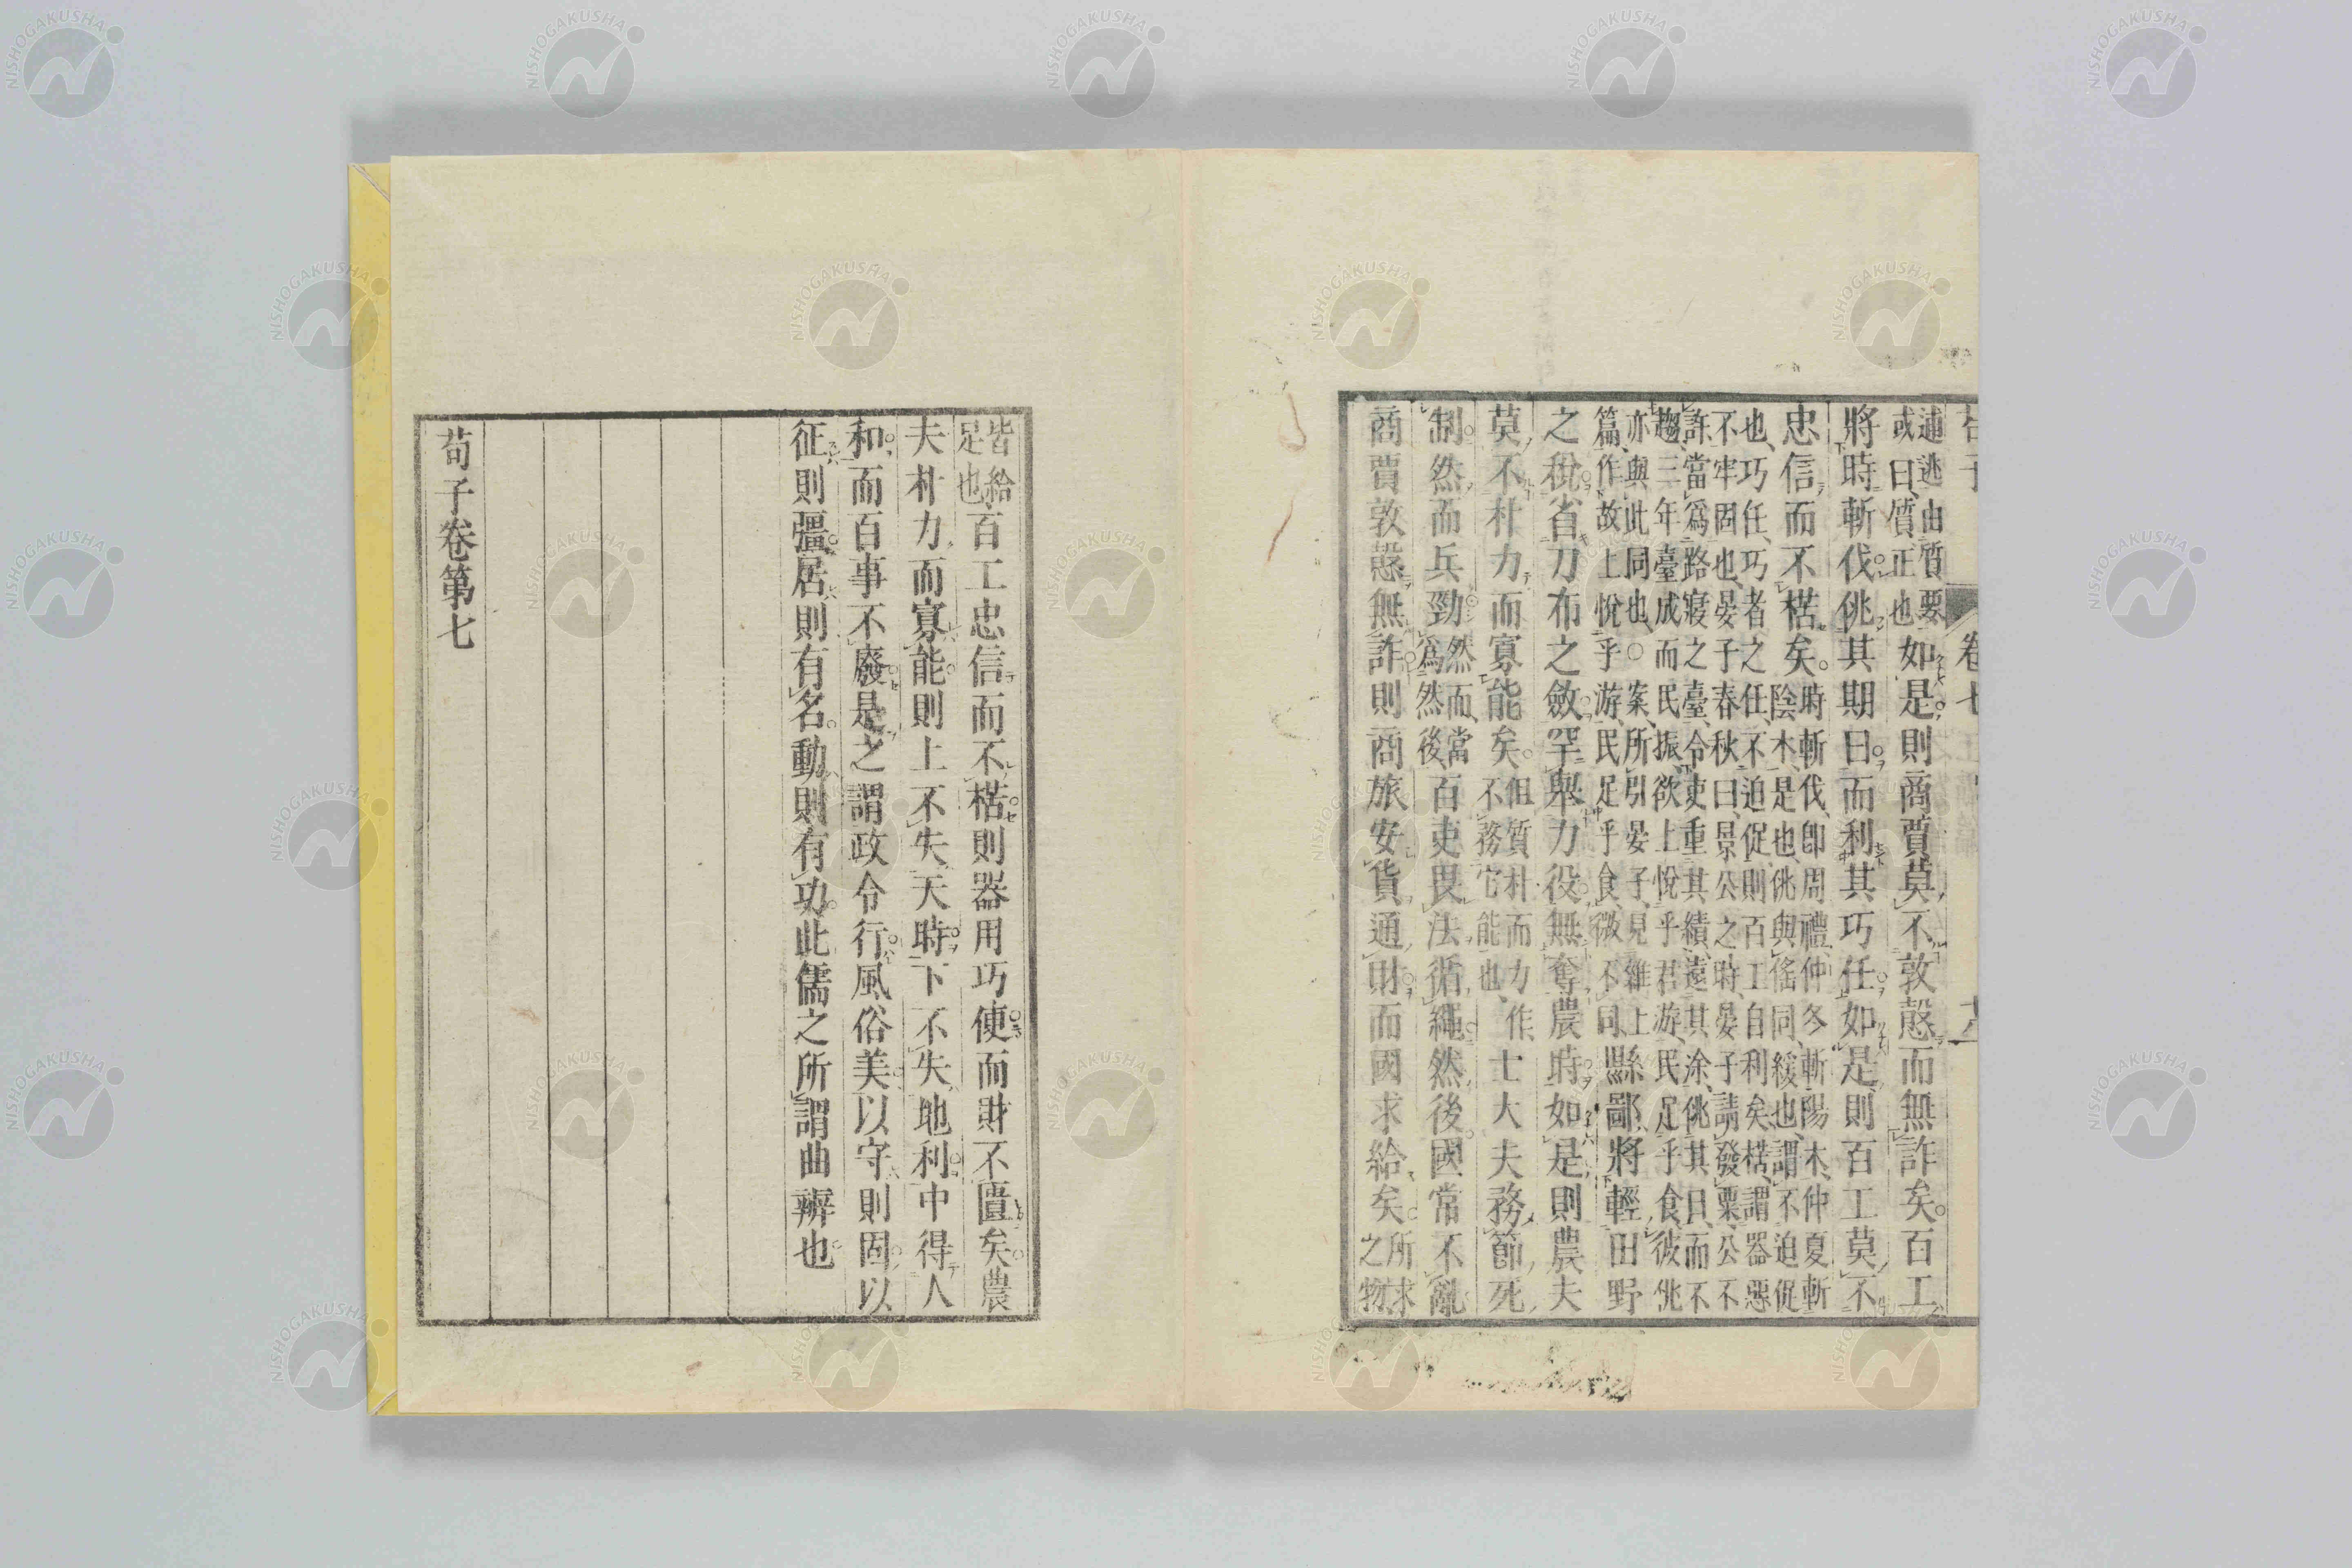 卷七
逋逃由質要
或曰質正也
如是則商賈莫不敦慤而無詐矣百工
將時斬伐佻其期日而利其巧任如是則百工莫不
忠信而不楛矣
時斬伐卽周禮仲冬斬陽木仲夏斬
陰木是也佻與傜同緩也謂不迫促
也巧任巧者之任不迫促則百工自利矣楛謂器惡
不牢固也晏子春秋曰景公之時晏子請發粟公不
許當爲路寢之臺令吏重其績遠其涂佻其日而不
趨三年臺成而民振欲上悅乎君游民足乎食彼佻
亦與此同也○案所引晏子見雜上
篇作故上悅乎游民足乎食微不同
縣鄙將輕田野
之稅省刀布之斂罕舉力役無奪農時如是則農夫
莫不朴力而寡能矣
但質朴而力作
不務它能也
士大夫務節死
制然而兵勁
然而當
爲然後
百吏畏法循繩然後國常不亂
商賈敦慤無詐則商旅安貨通財而國求給矣
所求
之物
皆給
足也
百工忠信而不楛則器用巧使而財不匱矣農
夫朴力而寡能則上不失天時下不失地利中得人
和而百事不廢是之謂政令行風俗美以守則固以
征則彊居則有名動則有功此儒之所謂曲辨也
荀子卷第七